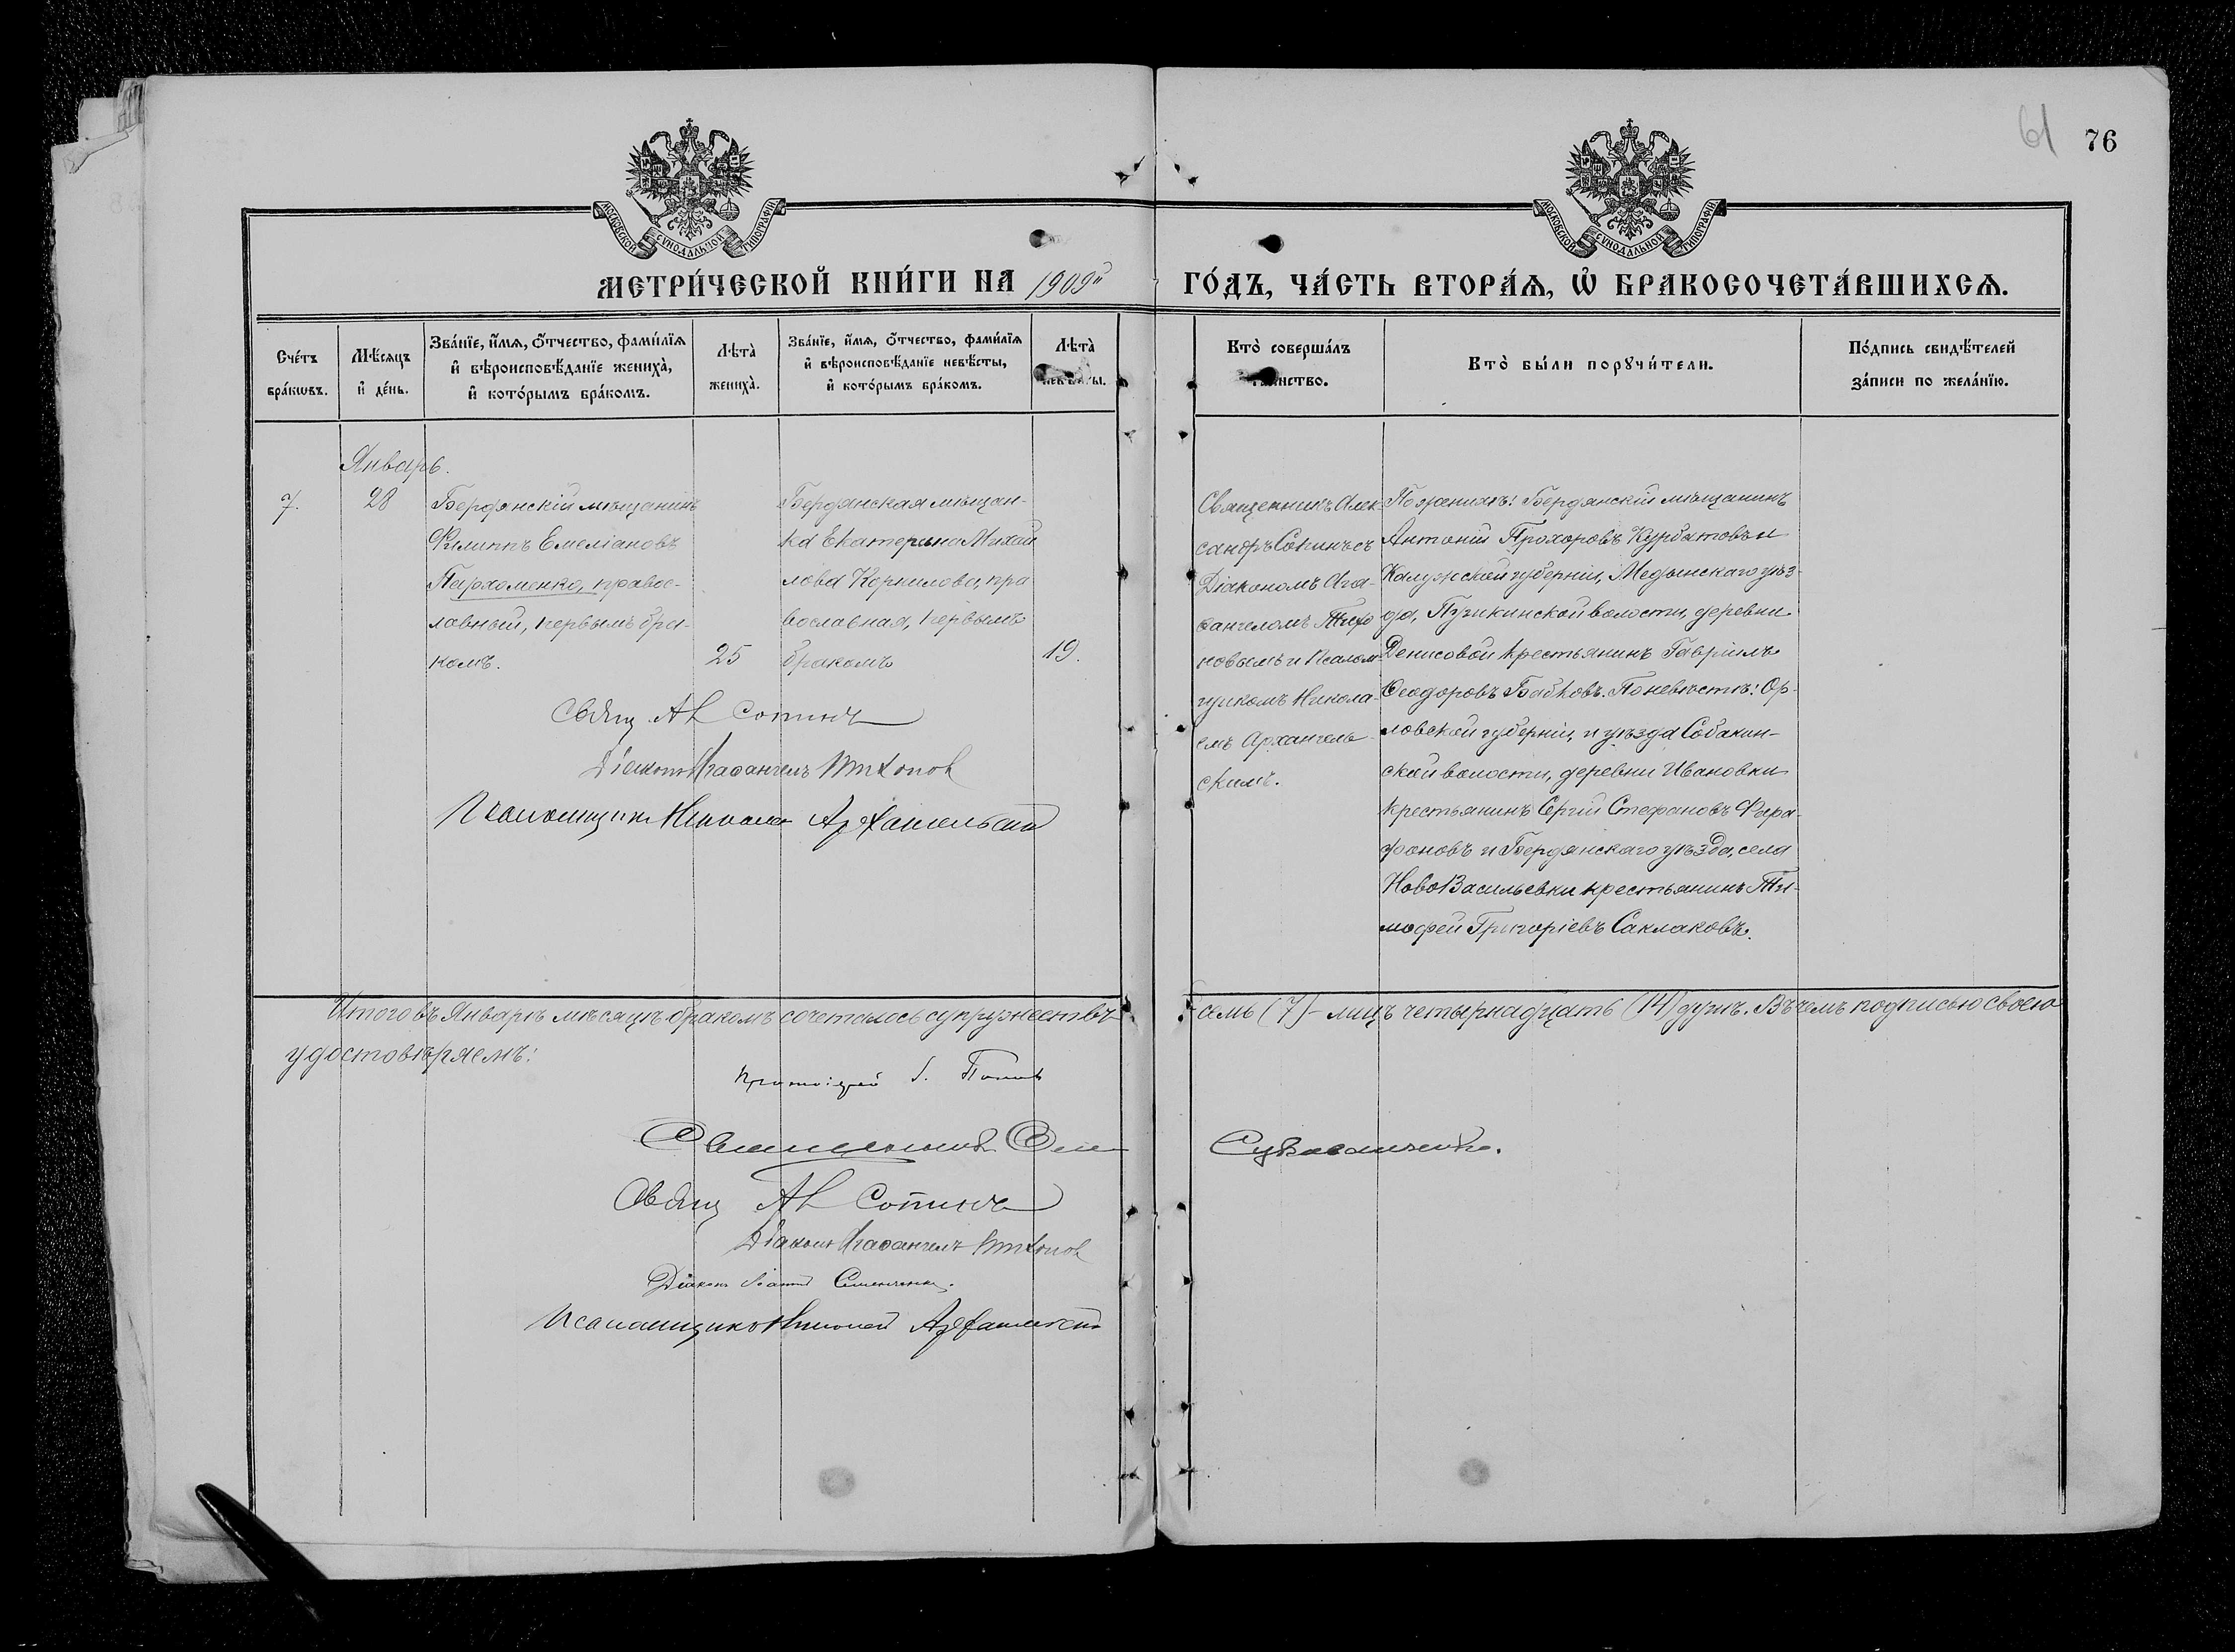 61
76
МОСКОВСКОЙ СѴНОДАЛЬНОЙ ТИПОГРАФІИ
МОСКОВСКОЙ СѴНОДАЛЬНОЙ ТИПОГРАФІИ
МЕТРИ́ЧЕСКОЙ КНИ́ГИ НА 1909й ГО́ДЪ, ЧА́СТЬ ВТОРА́Ѧ, Ѽ БРАКОСОЧЕТА́ВШИХСѦ.
Сче́тъ
бра́кѡвъ.
Мѣ́сѧцъ
и҆ де́нь.
Зва́нїе, и҆́мѧ, ѻ҆́тчество, фами́лїѧ
и҆ вѣроисповѣ́данїе жениха̀,
и҆ кото́рымъ бра́комъ.
Лѣта̀
жениха̀.
Зва́нїе, и҆́мѧ, ѻ҆́тчество, фами́лїѧ
и҆ вѣроисповѣ́данїе невѣ́сты,
и҆ кото́рымъ бра́комъ.
Лѣта̀
невѣ́сты.
Кто̀ соверша́лъ
таинство.
Кто̀ бы́ли порꙋчи́тели.
По́дпись свидѣ́телей
за́писи по жела́нїю.
Январь.
7.
28
Бердянскій мѣщанинъ
Филиппъ Емеліановъ
Пархоменко, правос-
лавный, первымъ бра-
комъ.
25
Бердянская мѣщан-
ка Екатерина Михай
лова Корнилова, пра
вославная, первымъ
бракомъ
19.
Священникъ Алек-
сандръ Сопинъ съ
Діакономъ Ага-
ѳангеломъ Тихо
новымъ и Псалом-
щикомъ Никола-
емъ Архангель
скимъ.
По женихѣ: Бердянскій мѣщанинъ
Антоній Прохоровъ Курбатовъ и
Калужской губерніи, Медынскаго уѣз-
да, Пузикинской волости, деревни
Денисовой крестьянинъ Гавріилъ
Ѳеодоровъ Бабковъ. По невѣстѣ: Ор-
ловской губерніи, и уѣзда Собакин-
ской волости, деревни Ивановки
крестьянинъ Сергій Стефановъ Фара-
фоновъ и Бердянскаго уѣзда, села
НовоВасильевки крестьянинъ Ти-
мофей Григоріевъ Саклаковъ.
Свящ. Ал Сопинъ
Діаконъ Агаѳангелъ Тихонов
Псаломщикъ Николай Архангельскій
Итого въ Январѣ мѣсяцѣ бракомъ сочеталось супружествъ - семь (7) - лицъ четырнадцать (14) душъ. Въ чемъ подписью своею
удостовѣряемъ:
Протоіерей І. Попов
Священникъ
Свящ Ал Сопинъ
Діаконъ Агаѳангелъ Тихонов
Діаконъ Іоаннъ
Псаломщикъ Николай Архангельскій